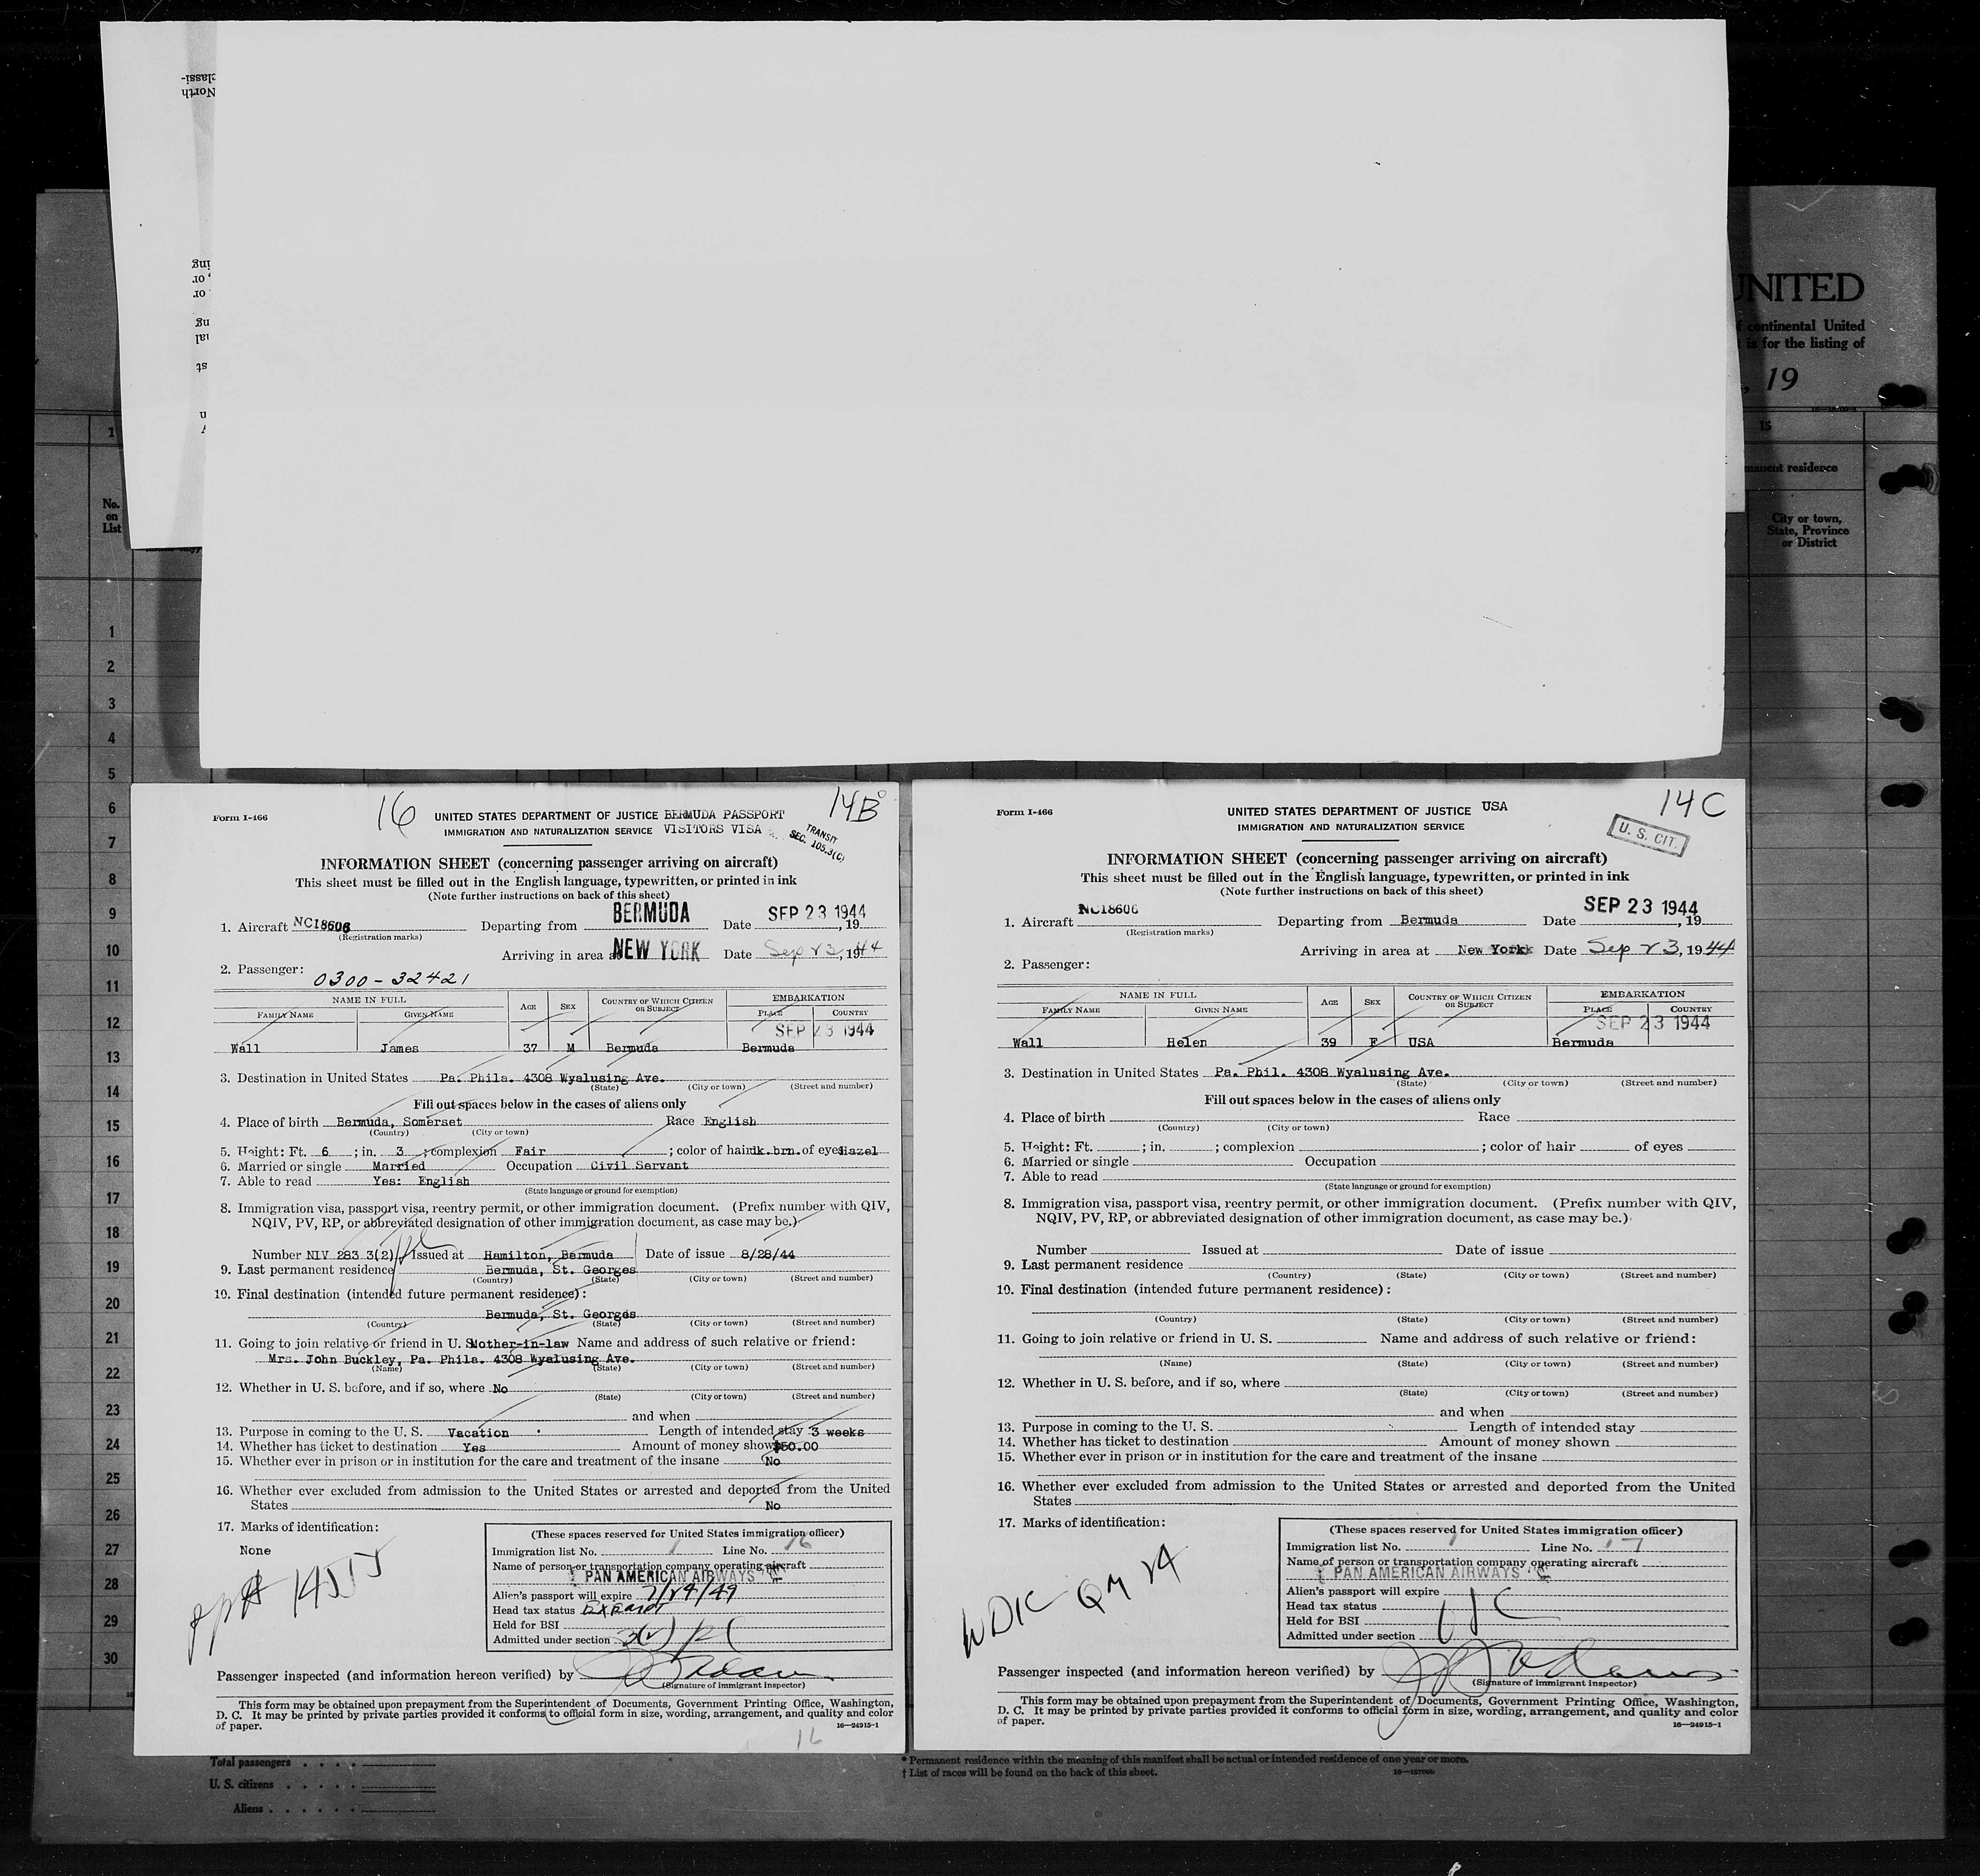 UNITED
continental United
is for the listing of
, 19
15
permanent residence
City or town,
State, Province
or District
No.
on
List
1
1
2
3
4
5
6
7
8
9
10
11
12
13
14
15
16
17
18
19
20
21
22
23
24
25
26
27
28
29
30
Form I-466
16
UNITED STATES DEPARTMENT OF JUSTICE BERMUDA PASSPORT
14B
IMMIGRATION AND NATURALIZATION SERVICE VISITORS VISA
TRANSIT
SEC. 105.3(C)
INFORMATION SHEET (concerning passenger arriving on aircraft)
This sheet must be filled out in the English language, typewritten, or printed in ink
(Note further instructions on back of this sheet)
1. Aircraft NC18606 Departing from BERMUDA Date SEP 23 1944, 19
(Registration marks)
Arriving in area at NEW YORK Date Sep 23, 1944
2. Passenger: 0300-32421
NAME IN FULL AGE SEX COUNTRY OF WHICH CITIZEN OR SUBJECT EMBARKATION
FAMILY NAME GIVEN NAME PLACE COUNTRY
SEP 23 1944
Wall James 37 M Bermuda Bermuda
3. Destination in United States Pa. Phila. 4308 Wyalusing Ave.
(State) (City or town) (Street and number)
Fill out spaces below in the cases of aliens only
4. Place of birth Bermuda, Somerset Race English
(Country) (City or town)
5. Height: Ft. 6 ; in. 3 ; complexion Fair ; color of hair dk.brn. of eyes Hazel
6. Married or single Married Occupation Civil Servant
7. Able to read Yes: English
(State language or ground for exemption)
8. Immigration visa, passport visa, reentry permit, or other immigration document. (Prefix number with QIV,
NQIV, PV, RP, or abbreviated designation of other immigration document, as case may be.)
Number NIV 283 3(2) Issued at Hamilton, Bermuda Date of issue 8/28/44
9. Last permanent residence Bermuda, St. Georges
(Country) (State) (City or town) (Street and number)
10. Final destination (intended future permanent residence):
Bermuda, St. Georges
(Country) (State) (City or town) (Street and number)
11. Going to join relative or friend in U. S. Mother-in-law Name and address of such relative or friend:
Mrs. John Buckley, Pa. Phila. 4308 Wyalusing Ave.
(Name) (State) (City or town) (Street and number)
12. Whether in U. S. before, and if so, where No
(State) (City or town) (Street and number)
and when
13. Purpose in coming to the U. S. Vacation Length of intended stay 3 weeks
14. Whether has ticket to destination Yes Amount of money shown $50.00
15. Whether ever in prison or in institution for the care and treatment of the insane No
16. Whether ever excluded from admission to the United States or arrested and deported from the United
States No
17. Marks of identification:
None
(These spaces reserved for United States immigration officer)
Immigration list No. 1 Line No. 16
Name of person or transportation company operating aircraft
PAN AMERICAN AIRWAYS
Alien's passport will expire 7/29/49
Head tax status
Held for BSI
Admitted under section 3(2)
Passenger inspected (and information hereon verified) by
(Signature of immigrant inspector)
This form may be obtained upon prepayment from the Superintendent of Documents, Government Printing Office, Washington,
D. C. It may be printed by private parties provided it conforms to official form in size, wording, arrangement, and quality and color
of paper.
16—24915-1
16
Form I-466
UNITED STATES DEPARTMENT OF JUSTICE USA
14C
IMMIGRATION AND NATURALIZATION SERVICE
U. S. CIT.
INFORMATION SHEET (concerning passenger arriving on aircraft)
This sheet must be filled out in the English language, typewritten, or printed in ink
(Note further instructions on back of this sheet)
1. Aircraft NC18606 Departing from Bermuda Date SEP 23 1944, 19
(Registration marks)
Arriving in area at New York Date Sep 23, 1944
2. Passenger:
NAME IN FULL AGE SEX COUNTRY OF WHICH CITIZEN OR SUBJECT EMBARKATION
FAMILY NAME GIVEN NAME PLACE COUNTRY
SEP 23 1944
Wall Helen 39 F USA Bermuda
3. Destination in United States Pa. Phil. 4308 Wyalusing Ave.
(State) (City or town) (Street and number)
Fill out spaces below in the cases of aliens only
4. Place of birth Race
(Country) (City or town)
5. Height: Ft. ; in. ; complexion ; color of hair of eyes
6. Married or single Occupation
7. Able to read
(State language or ground for exemption)
8. Immigration visa, passport visa, reentry permit, or other immigration document. (Prefix number with QIV,
NQIV, PV, RP, or abbreviated designation of other immigration document, as case may be.)
Number Issued at Date of issue
9. Last permanent residence
(Country) (State) (City or town) (Street and number)
10. Final destination (intended future permanent residence):
(Country) (State) (City or town) (Street and number)
11. Going to join relative or friend in U. S. Name and address of such relative or friend:
(Name) (State) (City or town) (Street and number)
12. Whether in U. S. before, and if so, where
(State) (City or town) (Street and number)
and when
13. Purpose in coming to the U. S. Length of intended stay
14. Whether has ticket to destination Amount of money shown
15. Whether ever in prison or in institution for the care and treatment of the insane
16. Whether ever excluded from admission to the United States or arrested and deported from the United
States
17. Marks of identification:
(These spaces reserved for United States immigration officer)
Immigration list No. 1 Line No. 17
Name of person or transportation company operating aircraft
PAN AMERICAN AIRWAYS
Alien's passport will expire
Head tax status
Held for BSI
Admitted under section
Passenger inspected (and information hereon verified) by
(Signature of immigrant inspector)
This form may be obtained upon prepayment from the Superintendent of Documents, Government Printing Office, Washington,
D. C. It may be printed by private parties provided it conforms to official form in size, wording, arrangement, and quality and color
of paper.
16—24915-1
Total passengers
U. S. citizens
Aliens
* Permanent residence within the meaning of this manifest shall be actual or intended residence of one year or more.
† List of races will be found on the back of this sheet.